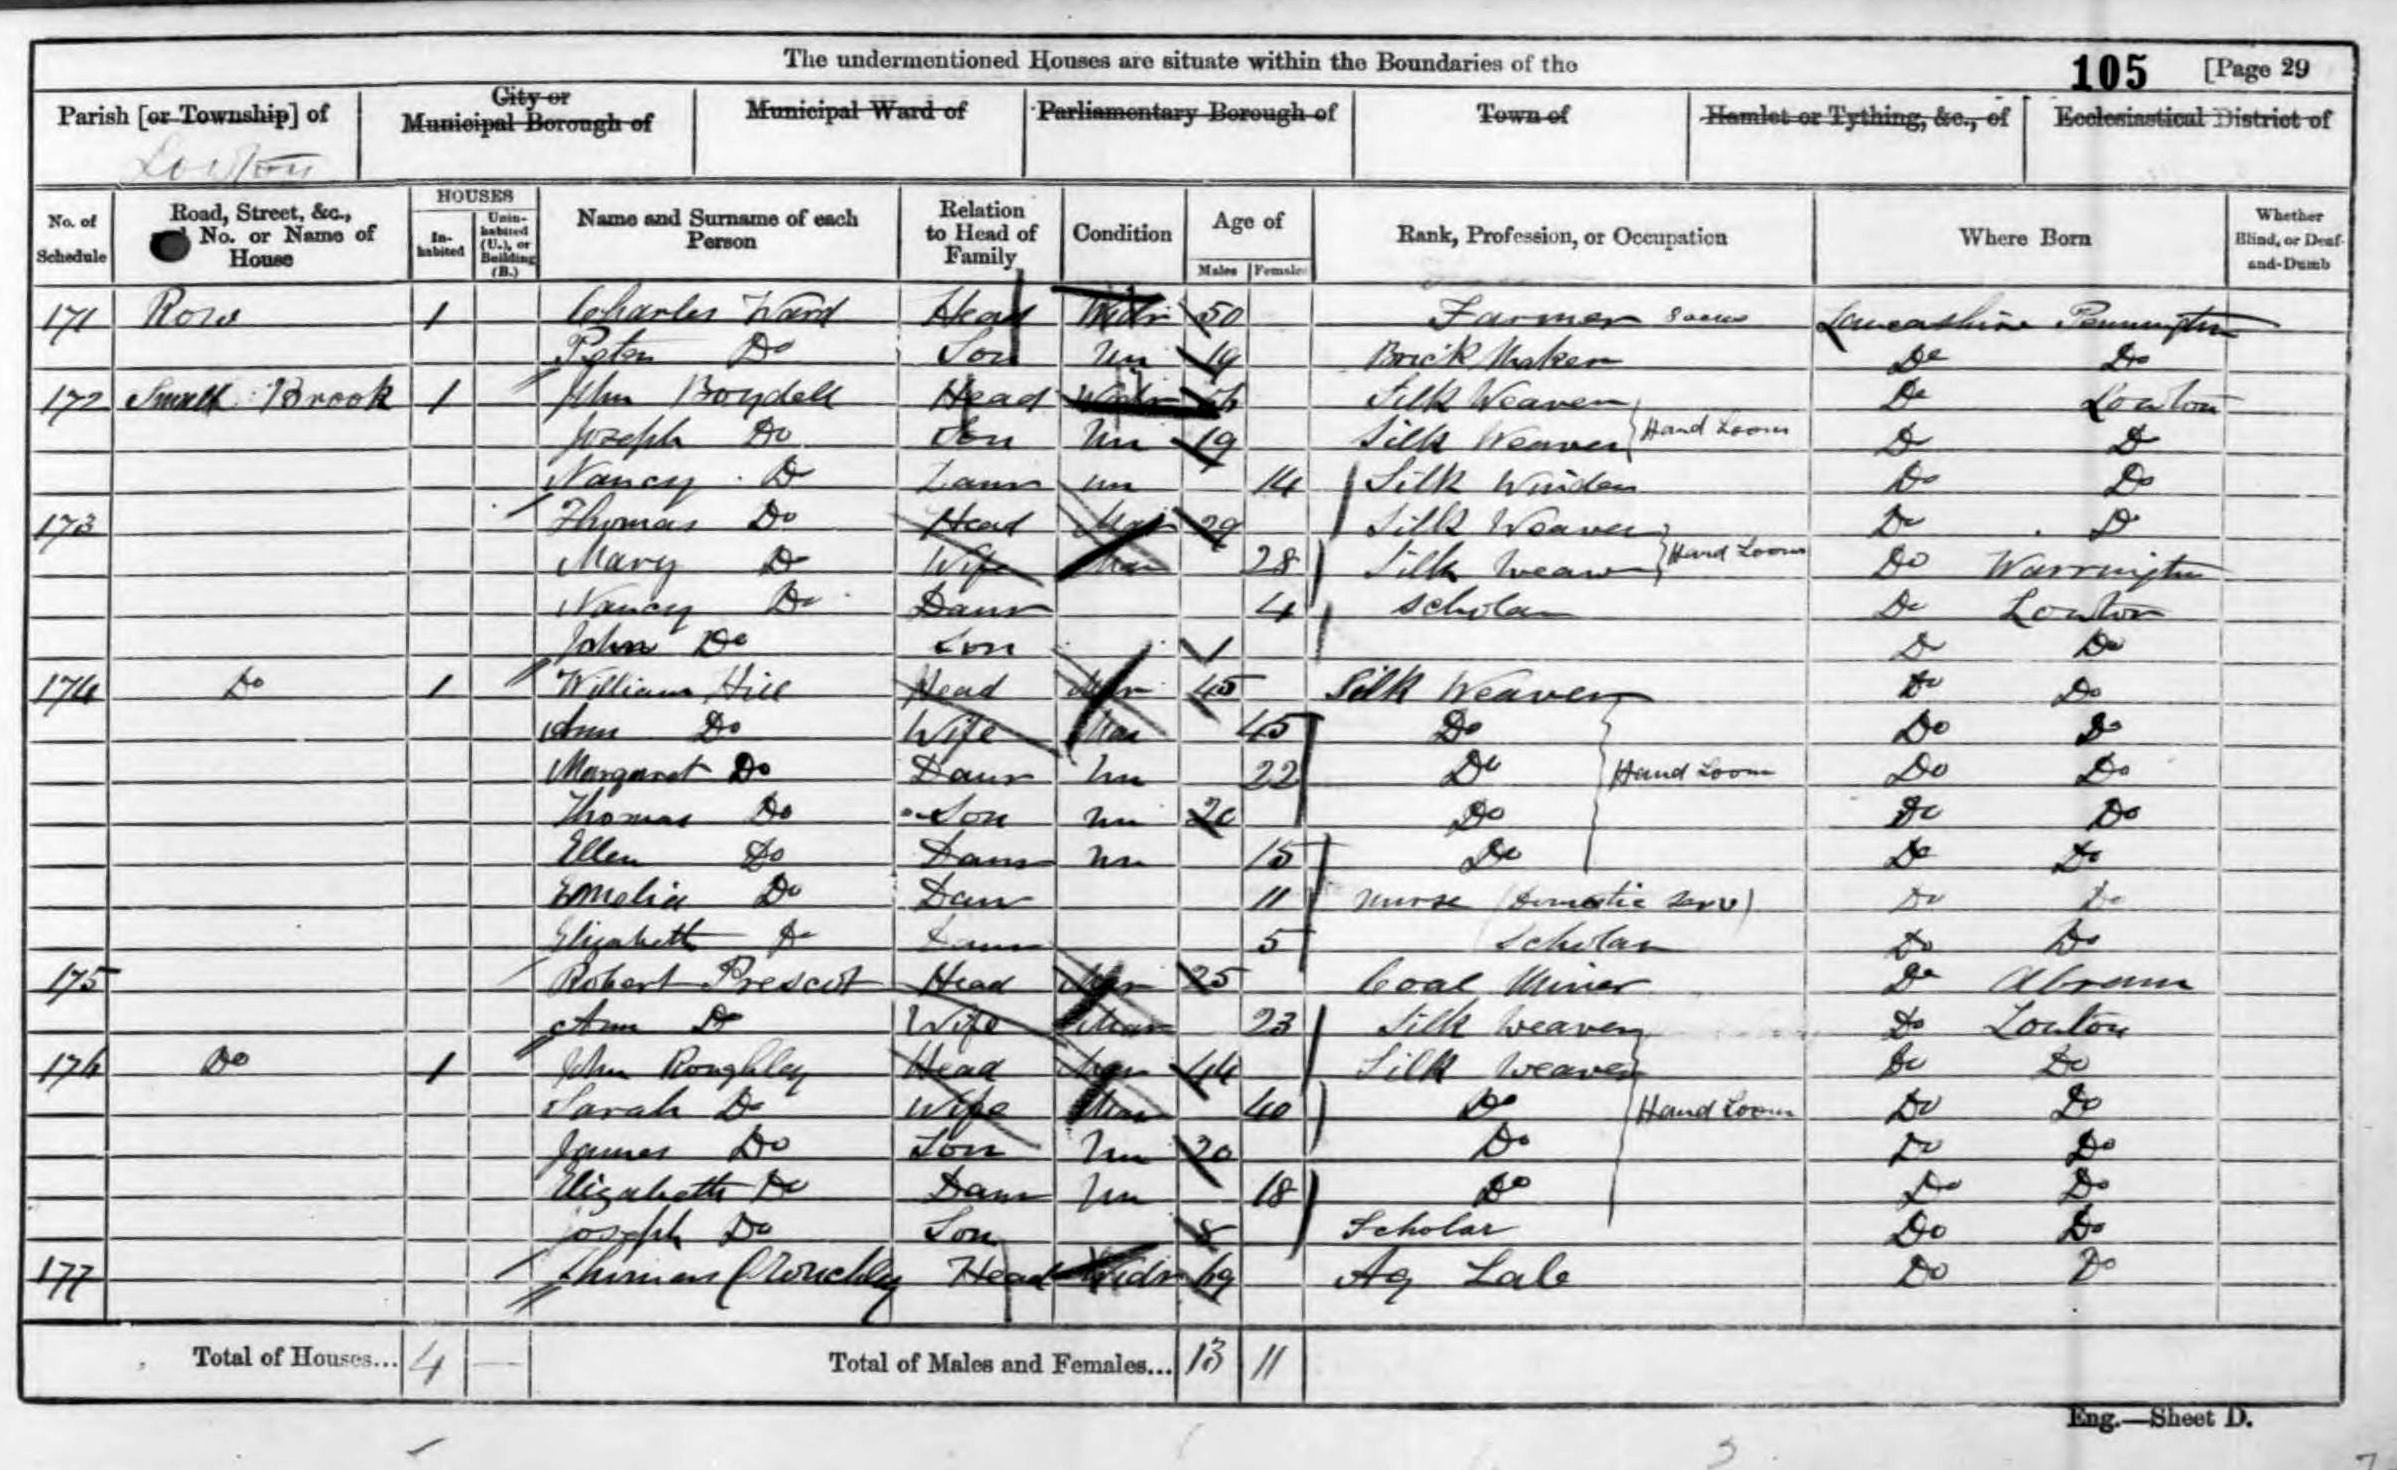 The undermentioned Houses are situate within the Boundaries of the
105 [Page 29
Parish [or Township] of
City or Municipal Borough of
Municipal Ward of
Parliamentary Borough of
Town of
Hamlet or Tything, &c., of
Ecclesiastical District of
Lowton
No. of Schedule
Road, Street, &c., No. or Name of House
HOUSES
Inhabited
Uninhabited (U.), or Building (B.)
Name and Surname of each Person
Relation to Head of Family
Condition
Age of
Males
Females
Rank, Profession, or Occupation
Where Born
Whether Blind, or Deaf-and-Dumb
171 Row 1 Charles Ward Head Widr 50 Farmer Lancashire Pennington
Peter Do Son Un 19 Brick Maker Do Do
172 Small Brook 1 John Boydell Head Widr Silk Weaver Do Lowton
Joseph Do Son Un 19 Silk Weaver Hand Loom Do Do
Nancy Do Daur Un 14 Silk Winder Do Do
173 Thomas Do Head Mar 29 Silk Weaver Do Do
Mary Do Wife Mar 28 Silk Weaver Hand Loom Do Warrington
Nancy Do Daur 4 Scholar Do Lowton
John Do Son 1 Do Do
174 Do 1 William Hill Head Mar 45 Silk Weaver Do Do
Ann Do Wife Mar 45 Do Do Do
Margaret Do Daur Un 22 Do Hand Loom Do Do
Thomas Do Son Un 20 Do Do Do
Ellen Do Daur Un 15 Do Do Do
Emelia Do Daur 11 Nurse (Domestic Serv) Do Do
Elizabeth Do Daur 5 Scholar Do Do
175 Robert Prescot Head Mar 25 Coal Miner Do Abram
Ann Do Wife Mar 23 Silk Weaver Do Lowton
176 Do 1 John Roughley Head Mar 44 Silk Weaver Do Do
Sarah Do Wife Mar 40 Do Hand Loom Do Do
James Do Son Un 20 Do Do Do
Elizabeth Do Daur Un 18 Do Do Do
Joseph Do Son 8 Scholar Do Do
177 Head Widr 69 Ag Lab Do Do
Total of Houses... 4 —
Total of Males and Females... 13 11
Eng.—Sheet D.